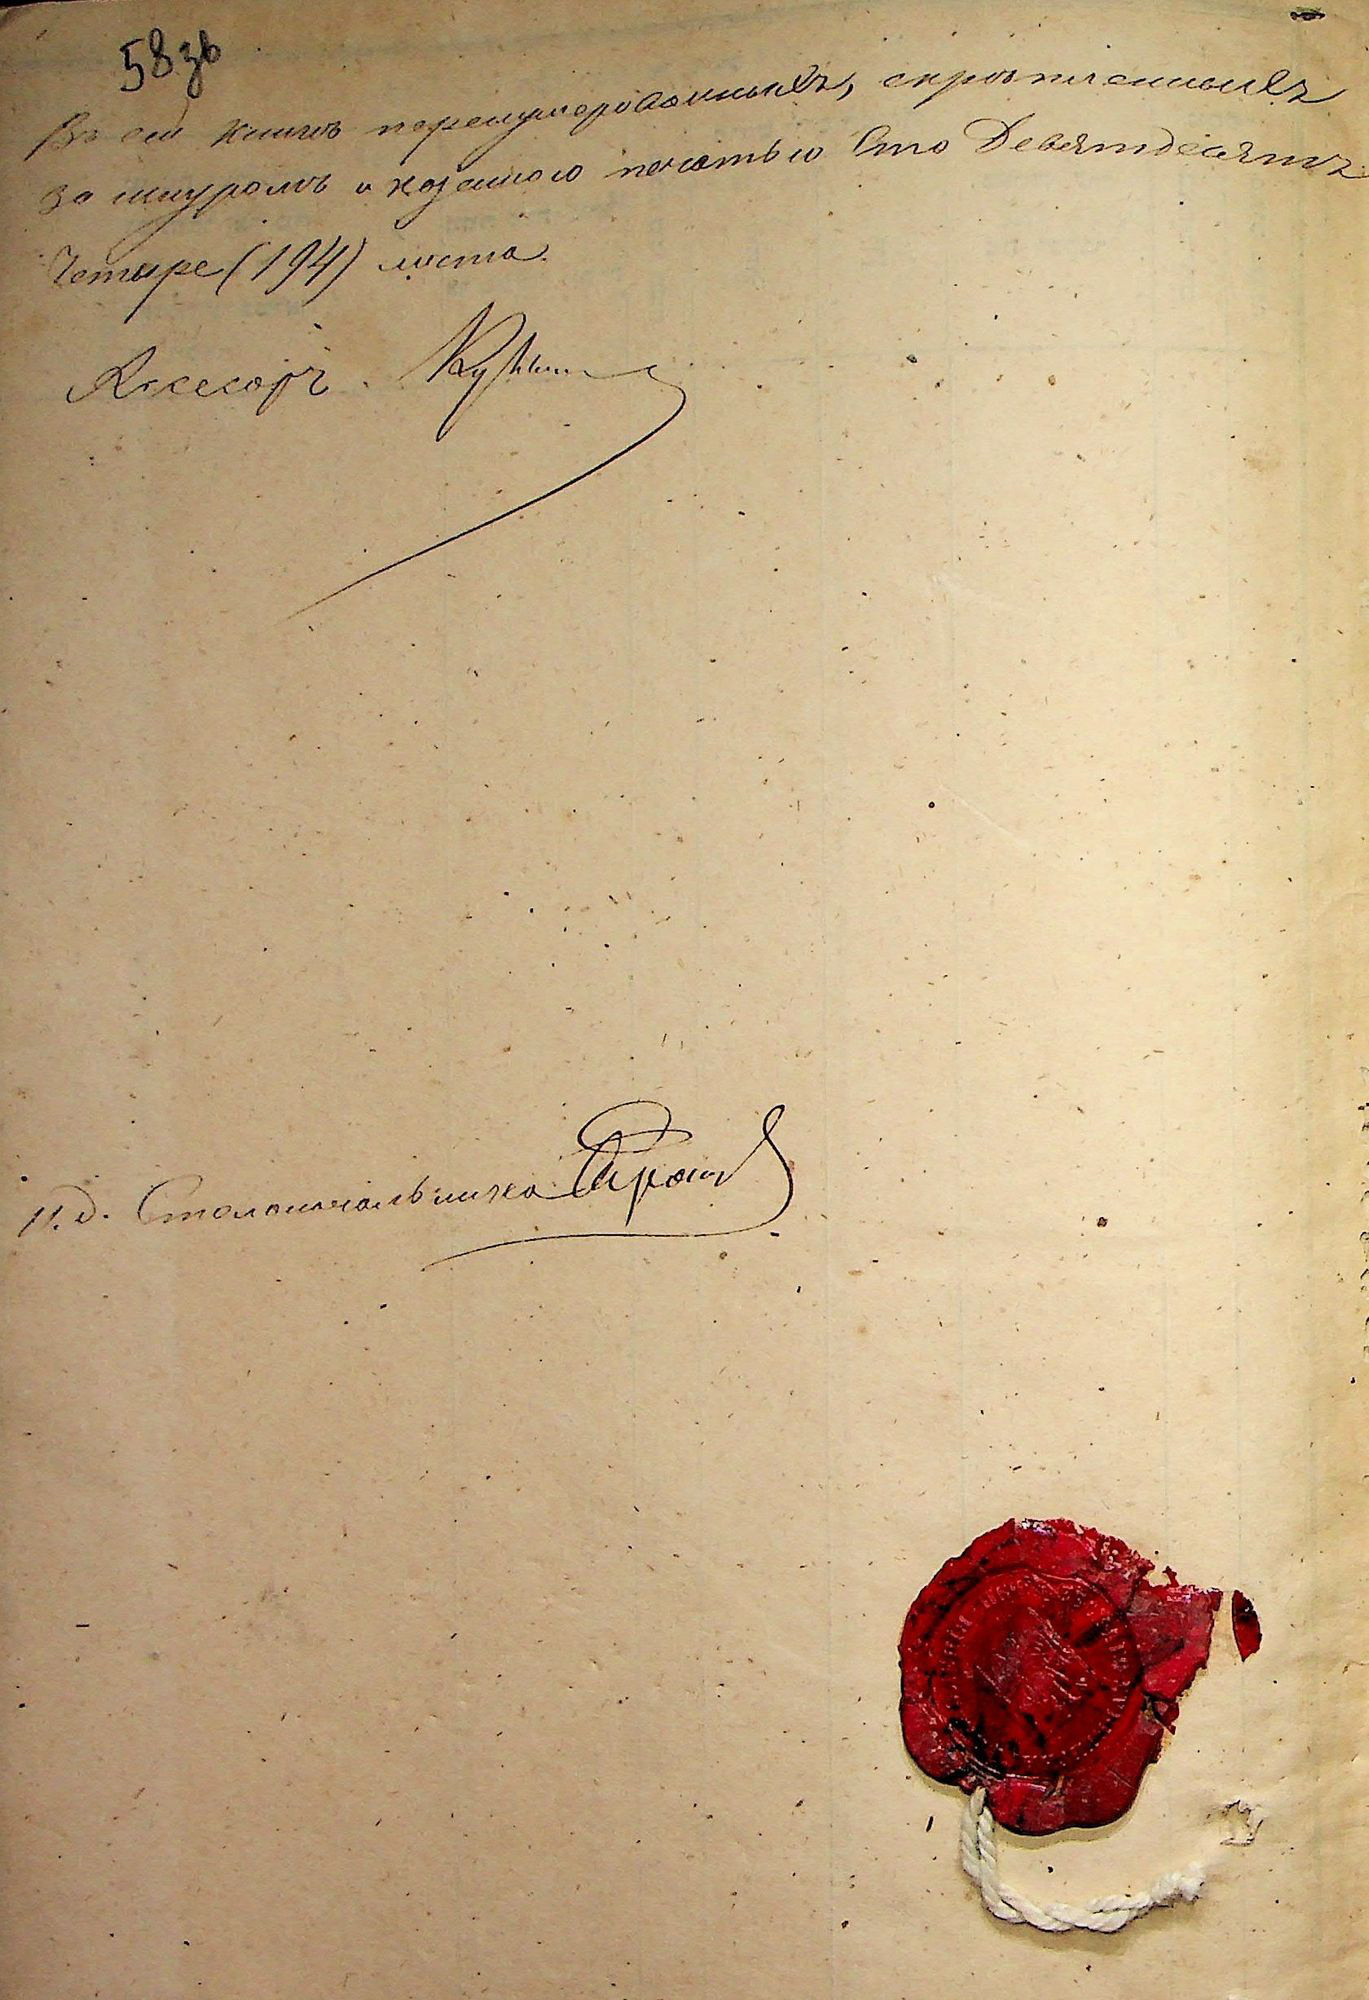 58 зв
Въ сей книгѣ перенумерованныхъ, скрѣпленныхъ
за шнуромъ и казенною печатью Сто Девятдесятъ
Четыре (194) листа.
Ассесоръ
И. д. Столоначальника